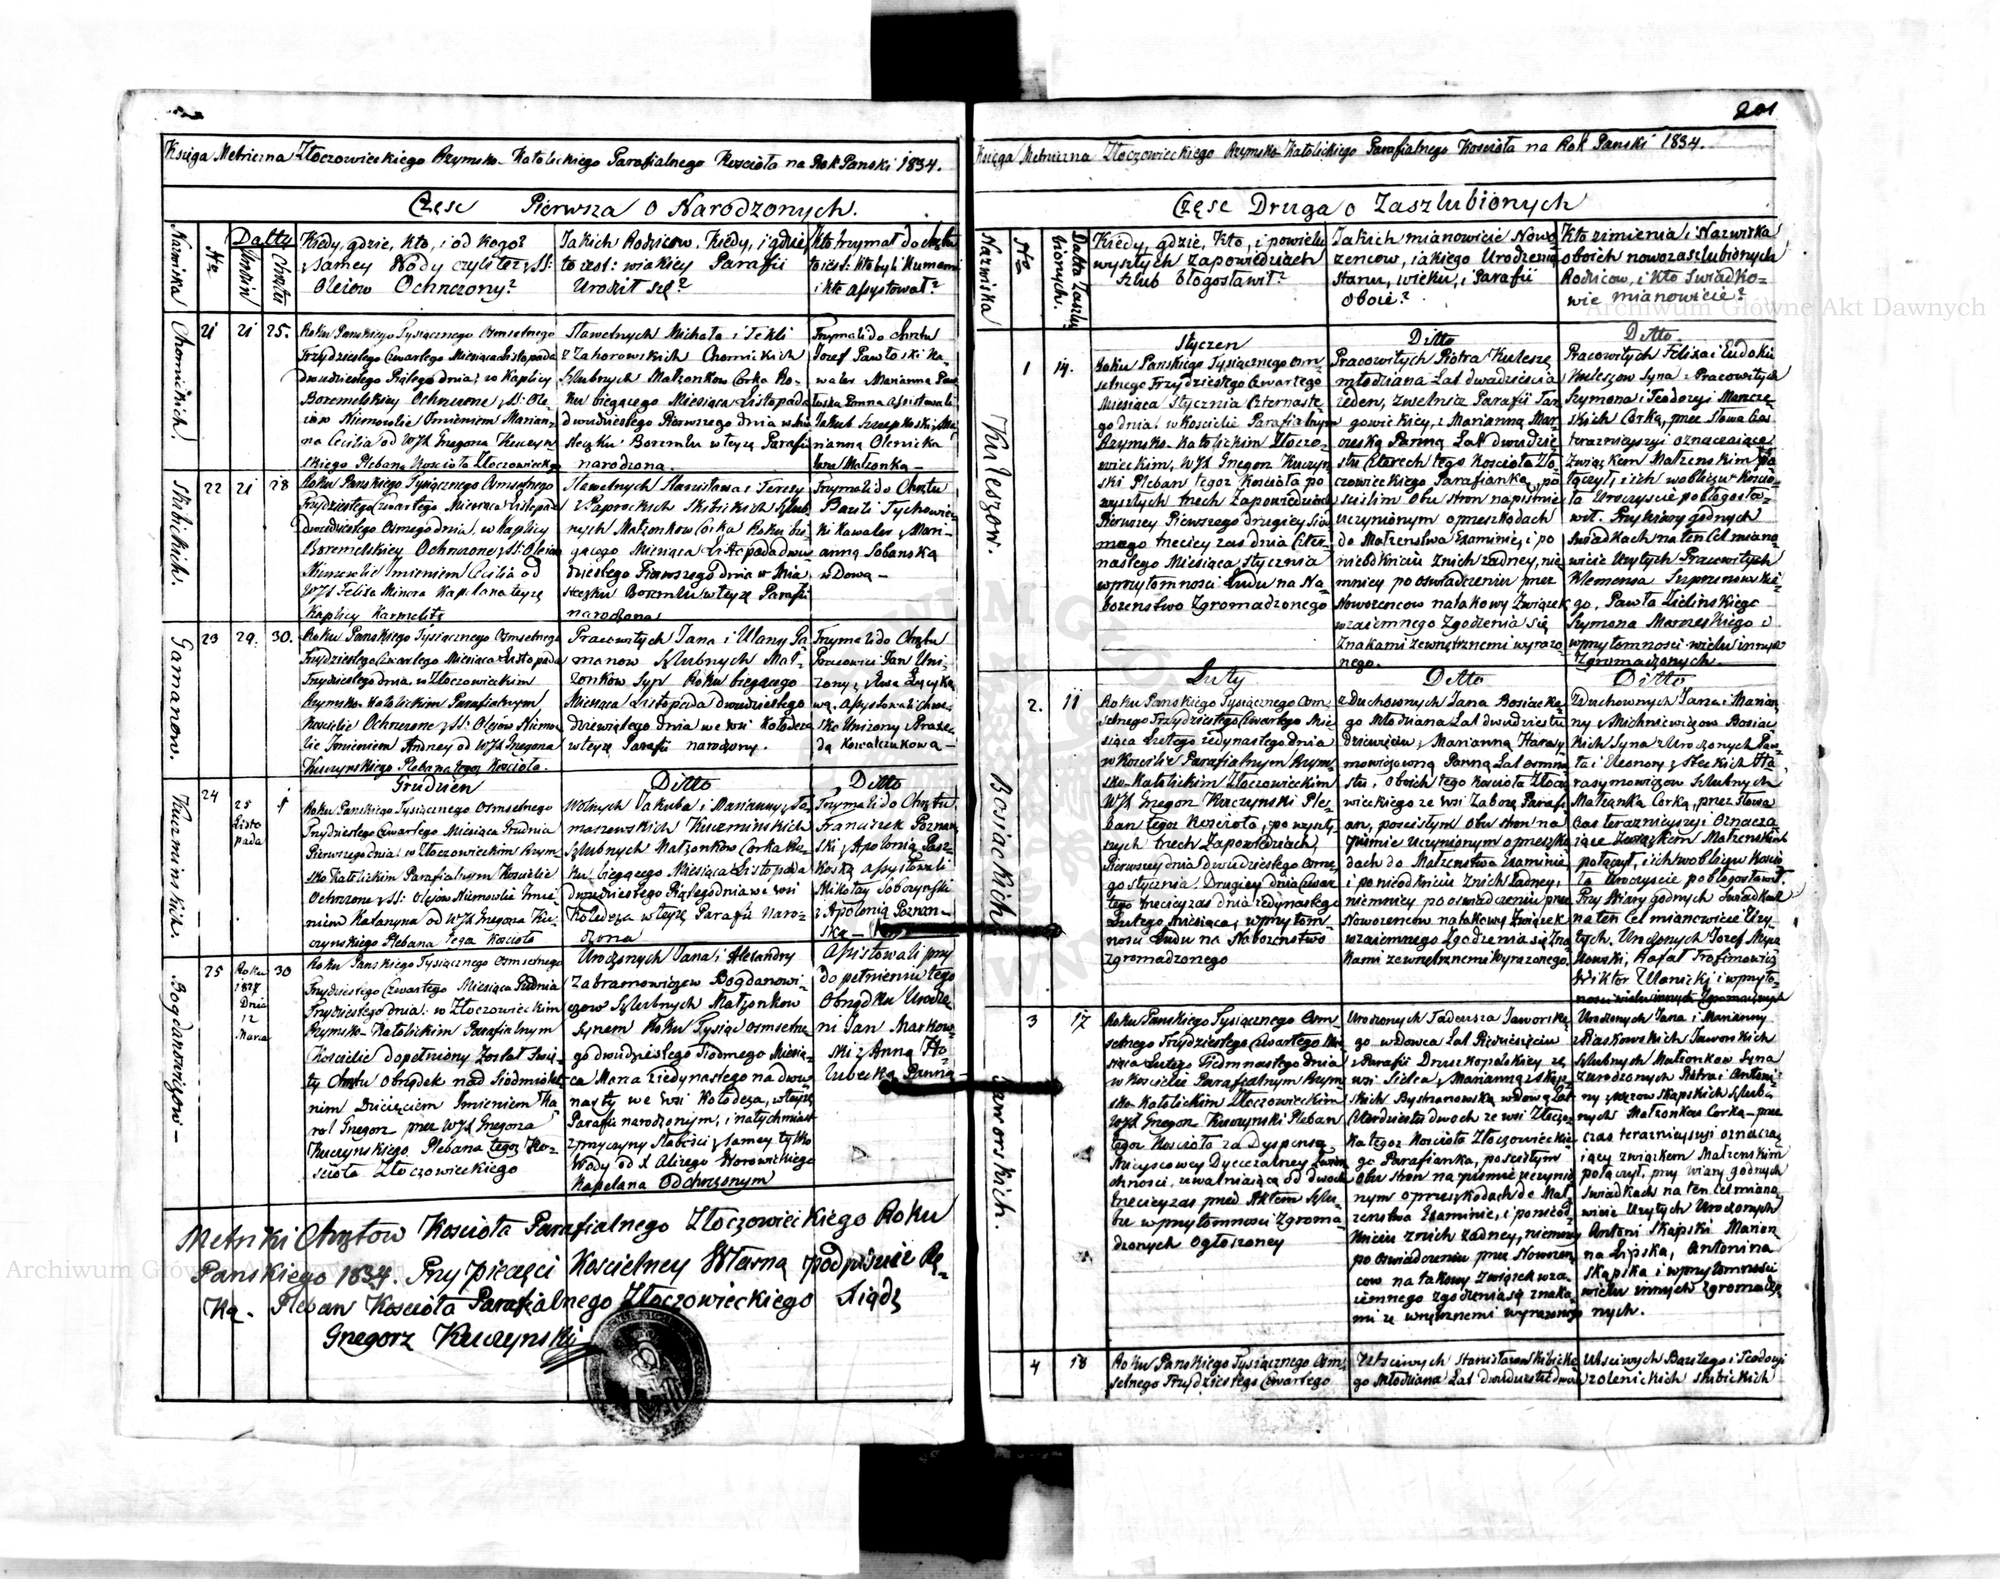 Księga Metriczna Złoczowieckiego Rzymsko-Katolickiego Parafialnego Kościoła na Rok Panski 1834.
Częsc Pierwsza o Narodzonych.
Nazwiska
Nro
Datty
Urodzin
Chrztu
Kiedy, gdzie, kto, i od kogo?
z samey Wody czyli też z SS:
Oleiow Ochrzczony?
Jakich Rodzicow, Kiedy, i gdzie
to iest: w iakiey Parafii
Urodził się?
Kto trzymał do chrztu
to iest: kto byli Kumami
i kto Assystował?
Chomickich.
21
21
25.
Roku Panskiego Tysiącznego Osmsetnego
Trzydziestego Czwartego Miesiąca Listopada
dwudziestego Piątego dnia: w Kaplicy
Boremelskiey Ochrzczone z SS: Ole-
iow Niemowlie Imieniem Marian-
na Cecilia od WJX Gregorza Kuczyn-
skiego Plebana Kosciola Złoczowieckego
Sławetnych Michała i Tekli
z Zahorowskich Chomickich
Szlubnych Małzonkow Corka Ro-
ku biegącego Miesiąca Listopada
dwudziestego Pierwszego dnia w Mia-
steczku Boremlu w teyże Parafii
narodzona.
Trzymali do Chrztu
Jozef Pawłoski Ka-
waler z Marianną Paw-
łoską Panną Assistowali
Jakub Szczepkoski z Ma-
rianną Olenicką
Jana Małzonką —
Skibickich.
22
21
28
Roku Panskiego Tysiącznego Osmsetnego
Trzydziestego Czwartego Miesiąca Listopada
dwudziestego Osmego dnia, w Kaplicy
Boremelskiey Ochrzczone z SS: Oleiow
Niemowlie Imieniem Cecilia od
WJX Felixa Minora Kapelana teyże
Kaplicy Karmelitę
Sławetnych Stanisława i Teresy
z Paprockich Skibickich Szlub-
nych Małzonkow Corka Roku bie-
gącego Miesiąca Listopada dwu-
dziestego Pierwszego dnia w Mia-
steczku Boremlu w teyże Parafii
narodzona
Trzymali do Chrztu
Bazili Tychowiec-
ki Kawaler z Mari-
anną Sobanską
wdową —
Gamanow.
23
29.
30.
Roku Panskiego Tysiącznego Osmsetnego
Trzydziestego Czwartego Miesiąca Listopada
Trzydziestego dnia, w Złoczowieckim
Rzymsko-Katolickim Parafialnym
Kosciele Ochrzczone z SS: Oleiow Niemo-
lie Imieniem Andrzey od WJX Gregorza
Kuczynskiego Plebana tegoż Kosciola.
Pracowitych Jana i Ulany Ga-
manow Szlubnych Mał-
zonkow Syn Roku biegącego
Miesiąca Listopada dwudziestego
dziewiątego dnia we wsi Kołodeza
w teyże Parafii narodzony.
Trzymali do Chrztu
Kuzminskich.
24
25
Listo
pada
1
Grudzien
Roku Panskiego Tysiącznego Osmsetnego
Trzydziestego Czwartego Miesiąca Grudnia
Pierwszego dnia: w Złoczowieckim Rzym-
sko Katolickim Parafialnym Kosciele
Ochrzczone z SS: Oleiow Niemowlie Imie-
niem Katarzyna od WJX Gregorza Ku-
czynskiego Plebana tegoż Kosciola
Ditto
Wolnych Jakuba i Marianny z To-
maszewskich Kuczminskich
Szlubnych Małzonkow Corka Ro-
ku biegącego Miesiąca Listopada
Dwudziestego Piątego dnia we wsi
Kołodeza w teyże Parafii Naro-
dzona
Ditto
Trzymali do Chrztu
Franciszek Poznan-
ski z Apolonią Pasz-
koską assystowali
Mikołay Soboczynski
z Apolonią Poznan-
ską —
Bogdanowiczow —
25
Roku
1827
Dnia
12
Marca
30
Roku Panskiego Tysiącznego Osmsetnego
Trzydziestego Czwartego Miesiąca Grudnia
Trzydziestego dnia: w Złoczowieckim
Rzymsko-Katolickim Parafialnym
Kosciele dopełniony został Swię-
ty Chrztu obrządek nad Siodmiolet-
nim Dziecięciem Imieniem Ka-
rol Gregorz przez WJX Gregorza
Kuczynskiego Plebana tegoż Ko-
sciola Złoczowieckiego
Urodzonych Jana i Alexandry
z Abramowiczow Bogdanowi-
czow Szlubnych Małzonkow
Synem Roku Tysiąc osmsetne-
go dwudziestego Siodmego Miesią-
ca Marca z iedynastego na dwu-
nasty we wsi Kołodeza, w teyże
Parafii narodzonym, i natychmiast
z przyczyny Słabości z samey tylko
Wody od X Alizego Worowickiego
Kapelana Odchrzczonym
Assistowali przy
dopełnieniu tego
Obrządku Urodze-
ni Jan Markow-
ski z Anną Ho-
lubecką Panną —
Metriki Chrztow Kościoła Parafialnego Złoczowieckiego Roku
Panskiego 1834. Przy pieczęci Koscielney Własną podpisuię Rę-
ką. Pleban Kosciola Parafialnego Złoczowieckiego Xiądz
Gregorz Kuczynski
201
Księga Metriczna Złoczowieckiego Rzymsko-Katolickiego Parafialnego Kosciola na Rok Panski 1834.
Częsc Druga o Zaszlubionych
Nazwiska
Nro
Datta Zaszlu-
bionych.
Kiedy, gdzie, Kto, i po wielu
wyszłych Zapowiedziach
Szlub błogosławił?
Jakich mianowicie Nowo-
zencow, iakiego Urodzenia
Stanu, wieku, i Parafii
oboie?
Kto z imienia i Nazwiska
oboich nowozaszlubionych
Rodzicow, i kto Swiadko-
wie mianowicie?
Kuleszow.
1
14.
Styczen
Roku Panskiego Tysiącznego Osm-
setnego Trzydziestego Czwartego
Miesiąca Stycznia Czternaste-
go dnia: w Kosciele Parafialnym
Rzymsko-Katolickim Złoczo-
wieckim, WJX Gregorz Kuczyn-
ski Pleban tegoż Kosciola po
wyszłych trzech Zapowiedziach
Pierwszey Pierwszego drugiey Siod-
mego trzeciey zas dnia Czter-
nastego Miesiąca Stycznia
w przytomnosci Ludu na Na-
bozenstwo Zgromadzonego
Ditto
Pracowitych Piotra Kuleszę
młodziana Lat dwadziescia
ieden, z wełnia Parafii Tar-
gowickiey, z Marianną Mar-
czeską Panną Lat dwudzie-
stu Czterech tego Kosciola Zło-
czowieckiego Parafianką, po
scislim obu stron na pismie
uczynionym o przeszkodach
do Małzenstwa Examinie, i po
nieodkriciu z nich zadney, nie
mniey po oswiadczeniu przez
Nowozencow na takowy Związek
wzaiemnego Zgodzenia się
Znakami zewnętrznemi wyrazo-
nego.
Ditto
Pracowitych Felixa i Eudoki
Kuleszow Syna z Pracowitych
Szymona i Teodozyi Marcze-
skich Corką, przez Słowa Czas
terazniejszy oznaczaiące
Związkem Małzenskim Po-
łączył, i ich w obliczu Koscio-
ła Uroczyscie pobłogosła-
wił. Przy Wiary godnych
Swiadkach na ten Cel miano-
wicie Uzytych Pracowitych
Klemensa Szpronowskie-
go, Pawła Zielinskiego
Szymona Marneskiego i
w przytomnosci wielu innych
Zgromadzonych.
Bosiackich
2.
11
Luty
Roku Panskiego Tysiącznego Osm-
setnego Trzydziestego Czwartego Mie-
siąca Lutego iedynastego dnia
w Kosciele Parafialnym Rzym-
sko-Katolickim Złoczowieckim
WJX Gregorz Kuczynski Ple-
ban tegoż Kosciola, po wyszły-
szych trzech Zapowiedziach
Pierwszey dnia Dwudziestego Osme-
go Stycznia, Drugiey dnia Czwar-
tego trzeciey zas dnia iedynastego
Lutego Miesiąca, w przytom-
nosci Ludu na Nabozenstwo
Zgromadzonego
Ditto
z Duchownych Jana Bosiacke-
go Młodziana Lat dwudziestu
dziewięciu, z Marianną Harasy-
mowiczową Panną Lat osmna-
stu, oboich tego Kosciola Złoczo-
wieckiego ze wsi Zaborę Parafi-
an, po scisłym obu stron na
pismie uczynionym o przeszko-
dach do Małzenstwa Examinie
i po nieodkriciu z nich zadney,
niemniey po oswiadczeniu przez
Nowozencow na takowy Związek
wzaiemnego Zgodzenia się Zna-
kami zewnętrznemi wyrazonego.
Ditto
Zduchownych Jana i Marian-
ny z Michniewiczow Bosiac-
kich Syna z Urodzonych Paw-
ła i Eleonory z Steckich Ha-
rasymowiczow Szlubnych
Małzonkow Corką, przez Słowa
Czas terazniejszy Oznacza-
iące Związkem Małzenskim
połączył, i ich w obliczu Koscio-
ła Uroczyscie pobłogosławił.
Przy Wiary godnych Swiadkach
na ten Cel mianowicie Uzy-
tych, Urodzonych Jozef
Rafał Trofimowicz
Wiktor Ulanicki i w przyto-
mnosci wielu innych Zgromadzonych
Jaworskich.
3
17
Roku Panskiego Tysiącznego Osm-
setnego Trzydziestego Czwartego Mie-
siąca Lutego Siedmnastego dnia
w Kosciele Parafialnym Rzym-
sko-Katolickim Złoczowieckim
WJX Gregorz Kuczynski Pleban
tegoż Kosciola za Dyspensą
Dyecezalney Zwierz-
chnosci, uwalniaiącą od dwoch
trzeciey zas przed Aktem Szlu-
bu w przytomnosci Zgroma-
dzonych Ogłoszoney
Urodzonych Tadeusza Jaworske-
go wdowca Lat Piędziesięciu
z Parafii Druszkopolskiey ze
wsi Sielca z Marianną z Skąp-
skich Bystranowską wdową Lat
Czterdziestu dwoch ze wsi Złoczow-
ka tegoż Kosciola Złoczowieckie-
go Parafianka, po scisłym
obu stron na pismie uczynio-
nym o przeszkodach do Mał-
zenstwa Examinie, i po nieod-
kriciu z nich zadney, niemniey
po oswiadczeniu przez Nowozen-
cow na takowy Związek wza-
iemnego zgodzenia się znaka-
mi zewnętrznemi wyrazonego
Urodzonych Jana i Marianny
z Piaskowskich Jaworskich
Szlubnych Małzonkow Syna
z urodzonych Piotra i Antoni-
ny Skąpskich Szlub-
nych Małzonkow Corką — przez
czas terazniejszy oznacza-
iący związkem Małzenskim
połączył, przy wiary godnych
swiadkach na ten Cel miano-
wicie Uzytych Urodzonych
Antoni Skąpski Marian-
na Lipska, Antonina
Skąpska i w przytomnosci
wielu innych zgromadzo-
nych.
4
18
Roku Panskiego Tysiącznego Osm-
setnego Trzydziestego Czwartego
Uczciwych Stanisława Skibicke-
go Młodziana Lat
Uczciwych Bazilego i Teodozyi
z Olenickich Skibickich
Archiwum Główne Akt Dawnych
Archiwum Główne Akt Dawnych